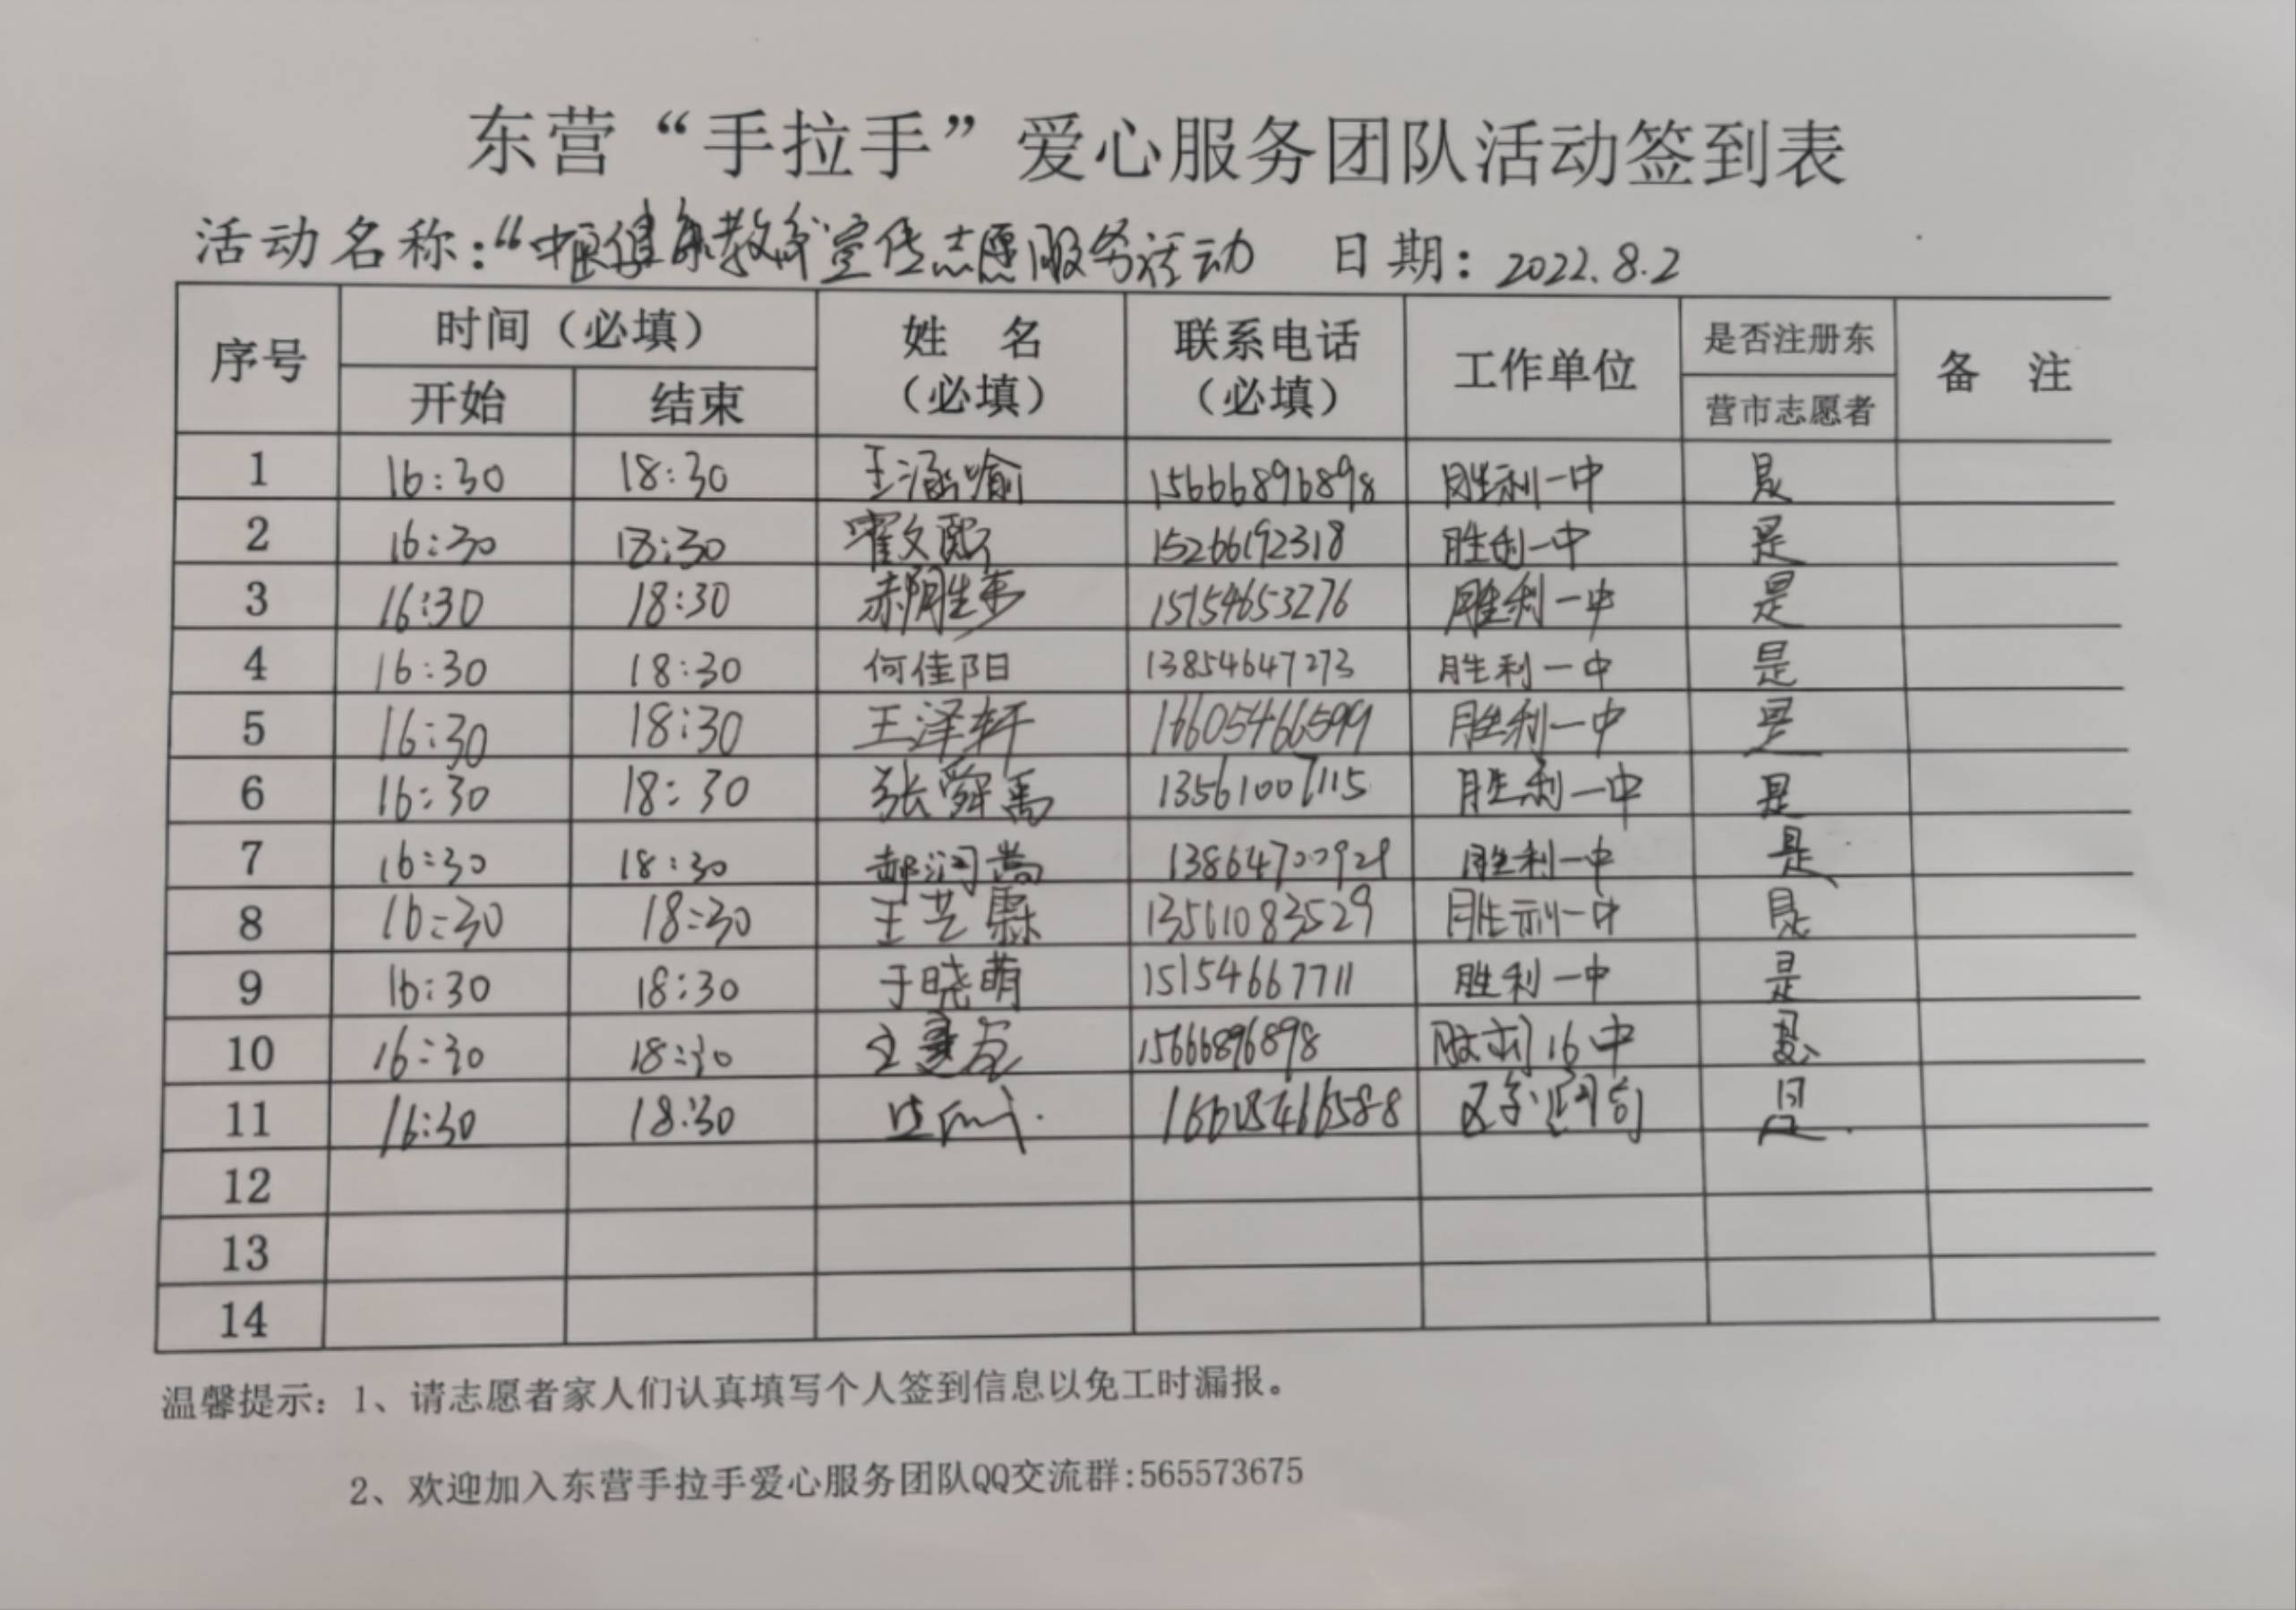 东营“手拉手”爱心服务团队活动签到表
活动名称：“中医健康教育宣传志愿服务活动 日期：2022.8.2
序号 时间（必填） 姓 名（必填） 联系电话（必填） 工作单位 是否注册东营市志愿者 备 注
开始 结束
1 16:30 18:30 王涵喻 15666896898 胜利一中 是
2 16:30 18:30 霍文熙 15266192318 胜利一中 是
3 16:30 18:30 郝胜来 15154653276 胜利一中 是
4 16:30 18:30 何佳阳 13854647273 胜利一中 是
5 16:30 18:30 王泽轩 16605466599 胜利一中 是
6 16:30 18:30 张舜禹 13561007115 胜利一中 是
7 16:30 18:30 郝润嵩 13864700929 胜利一中 是
8 16:30 18:30 王艺霖 13561083529 胜利一中 是
9 16:30 18:30 于晓萌 15154667711 胜利一中 是
10 16:30 18:30 15666896898 胜利16中 是
11 16:30 18:30 16605466588 是
12
13
14
温馨提示：1、请志愿者家人们认真填写个人签到信息以免工时漏报。
2、欢迎加入东营手拉手爱心服务团队QQ交流群:565573675